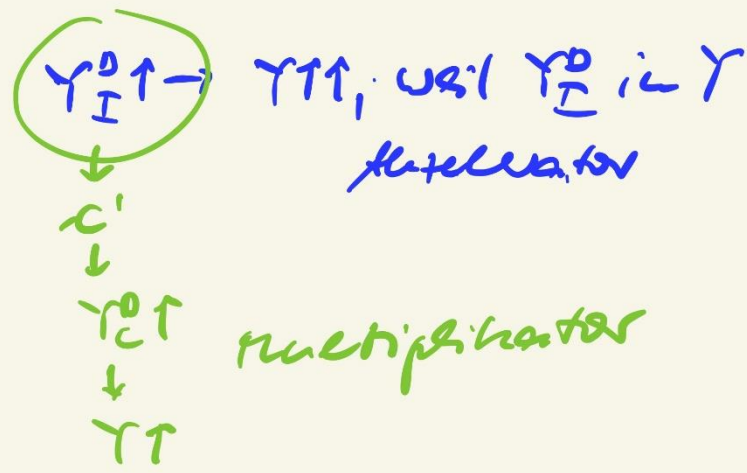 Y^D_I ↑ → Y↑↑, weil Y^D_I in Y
Akzelerator
↓
c'
↓
Y^D_C ↑
Multiplikator
↓
Y↑